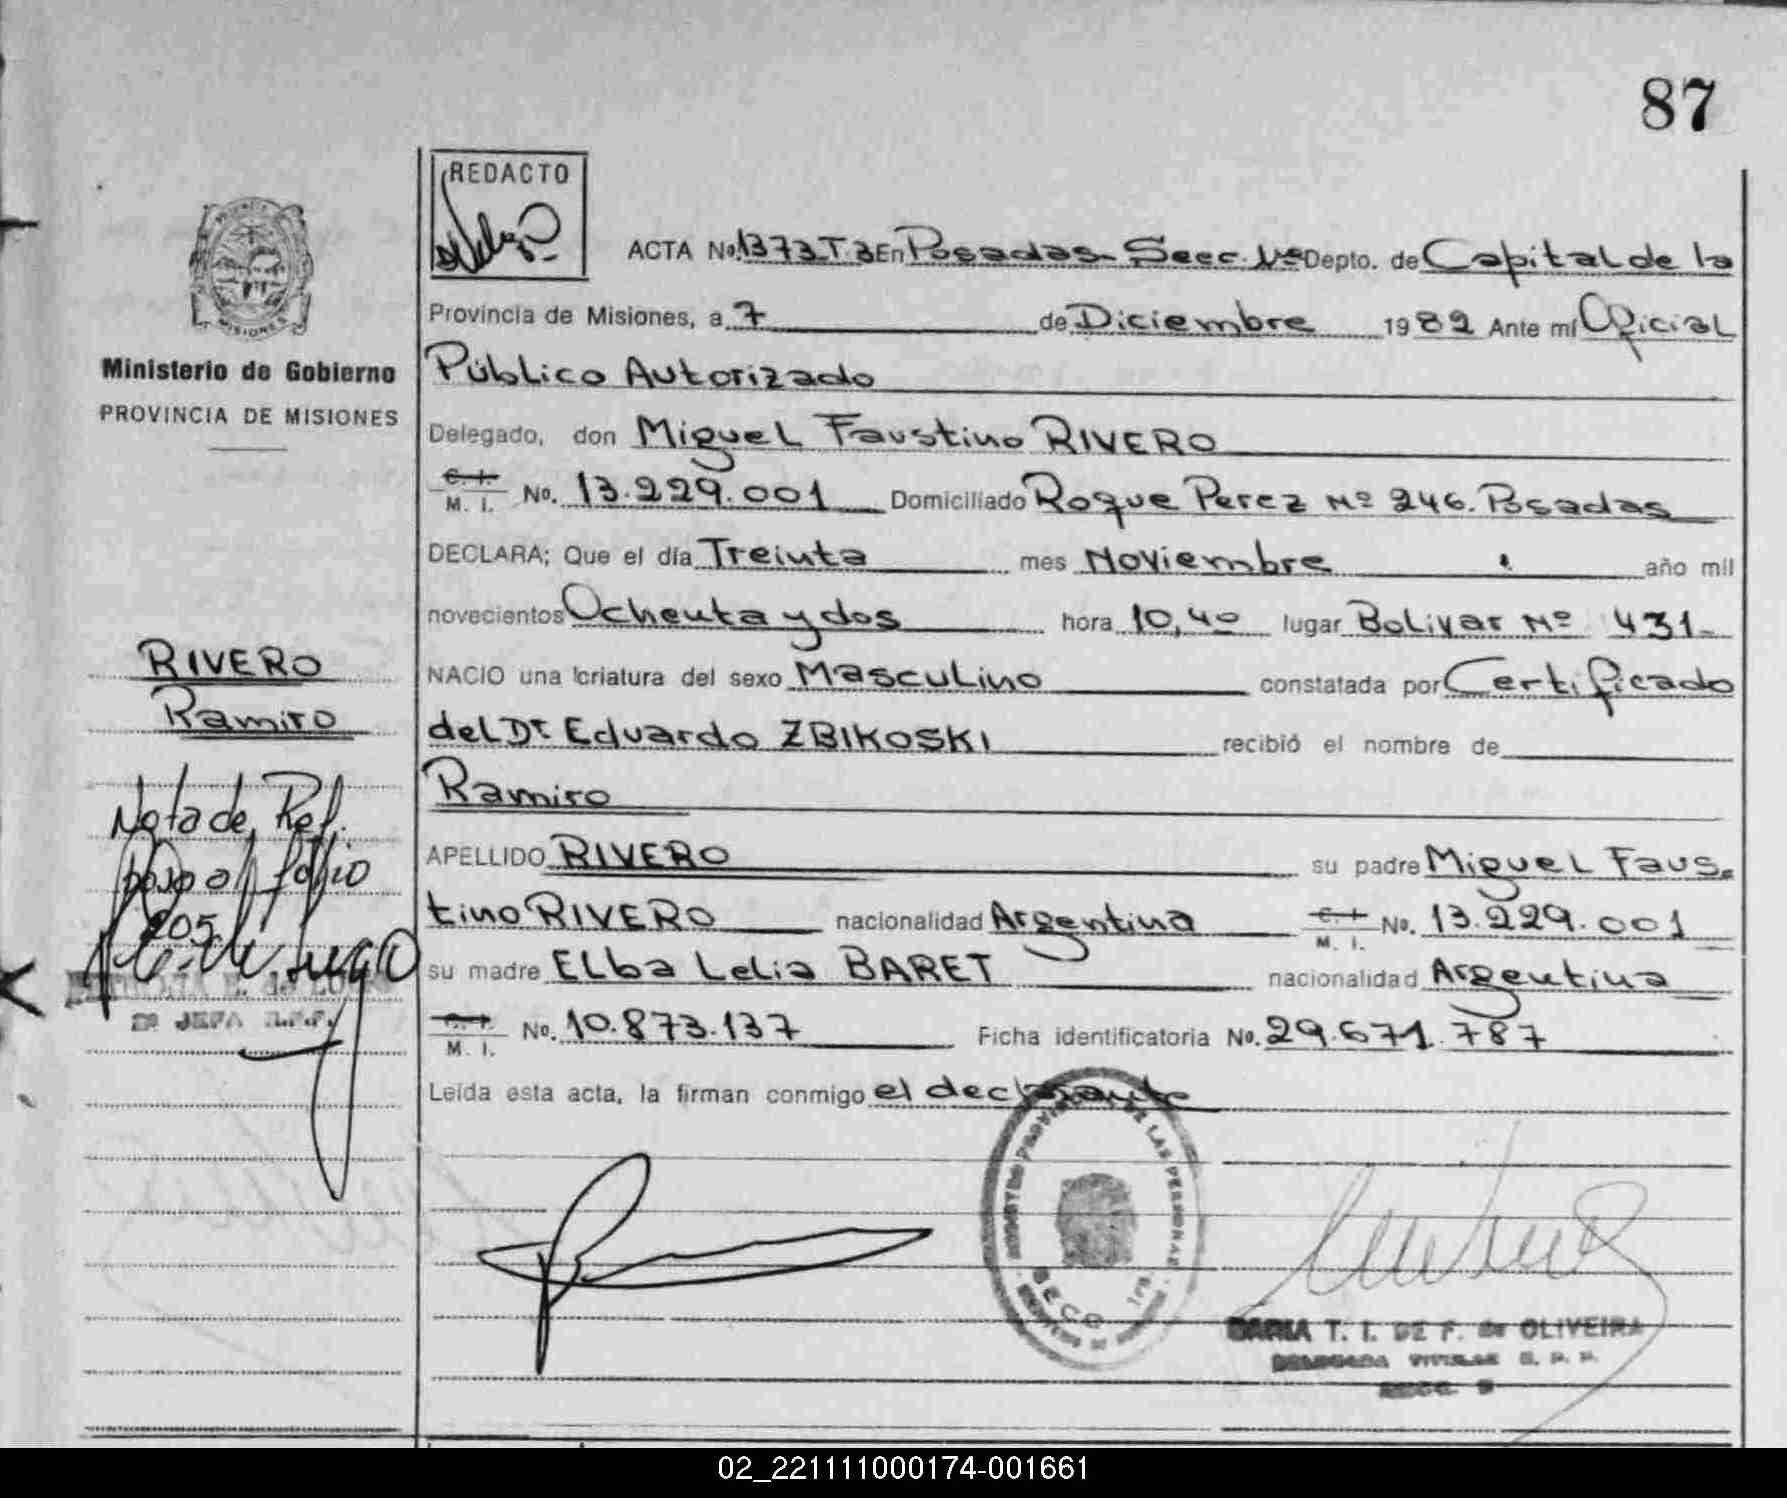 87
REDACTO
ACTA No. 1373 T.3 En Posadas - Secc. 1ª Depto. de Capital de la
Provincia de Misiones, a 7 de Diciembre 1982 Ante mí Oficial
Público Autorizado
Delegado, don Miguel Faustino RIVERO
C. I. M. I. No. 13.229.001 Domiciliado Roque Perez Nº 246. Posadas
DECLARA; Que el día Treinta mes Noviembre año mil
novecientos Ochenta y dos hora 10,40 lugar Bolivar Nº 431-
NACIO una criatura del sexo Masculino constatada por Certificado
del Dr Eduardo ZBIKOSKI recibió el nombre de
Ramiro
APELLIDO RIVERO su padre Miguel Faus-
tino RIVERO nacionalidad Argentina C. I. M. I. No. 13.229.001
su madre ELba Lelia BARET nacionalidad Argentina
C. I. M. I. No. 10.873.137 Ficha identificatoria No. 29.671.787
Leída esta acta, la firman conmigo el declarante
MISIONES
Ministerio de Gobierno
PROVINCIA DE MISIONES
RIVERO
Ramiro
Nota de Ref.
paso al folio
205
JEFA
DE LAS PERSONAS
SECC
T. I. DE F. de OLIVEIRA
02_221111000174-001661